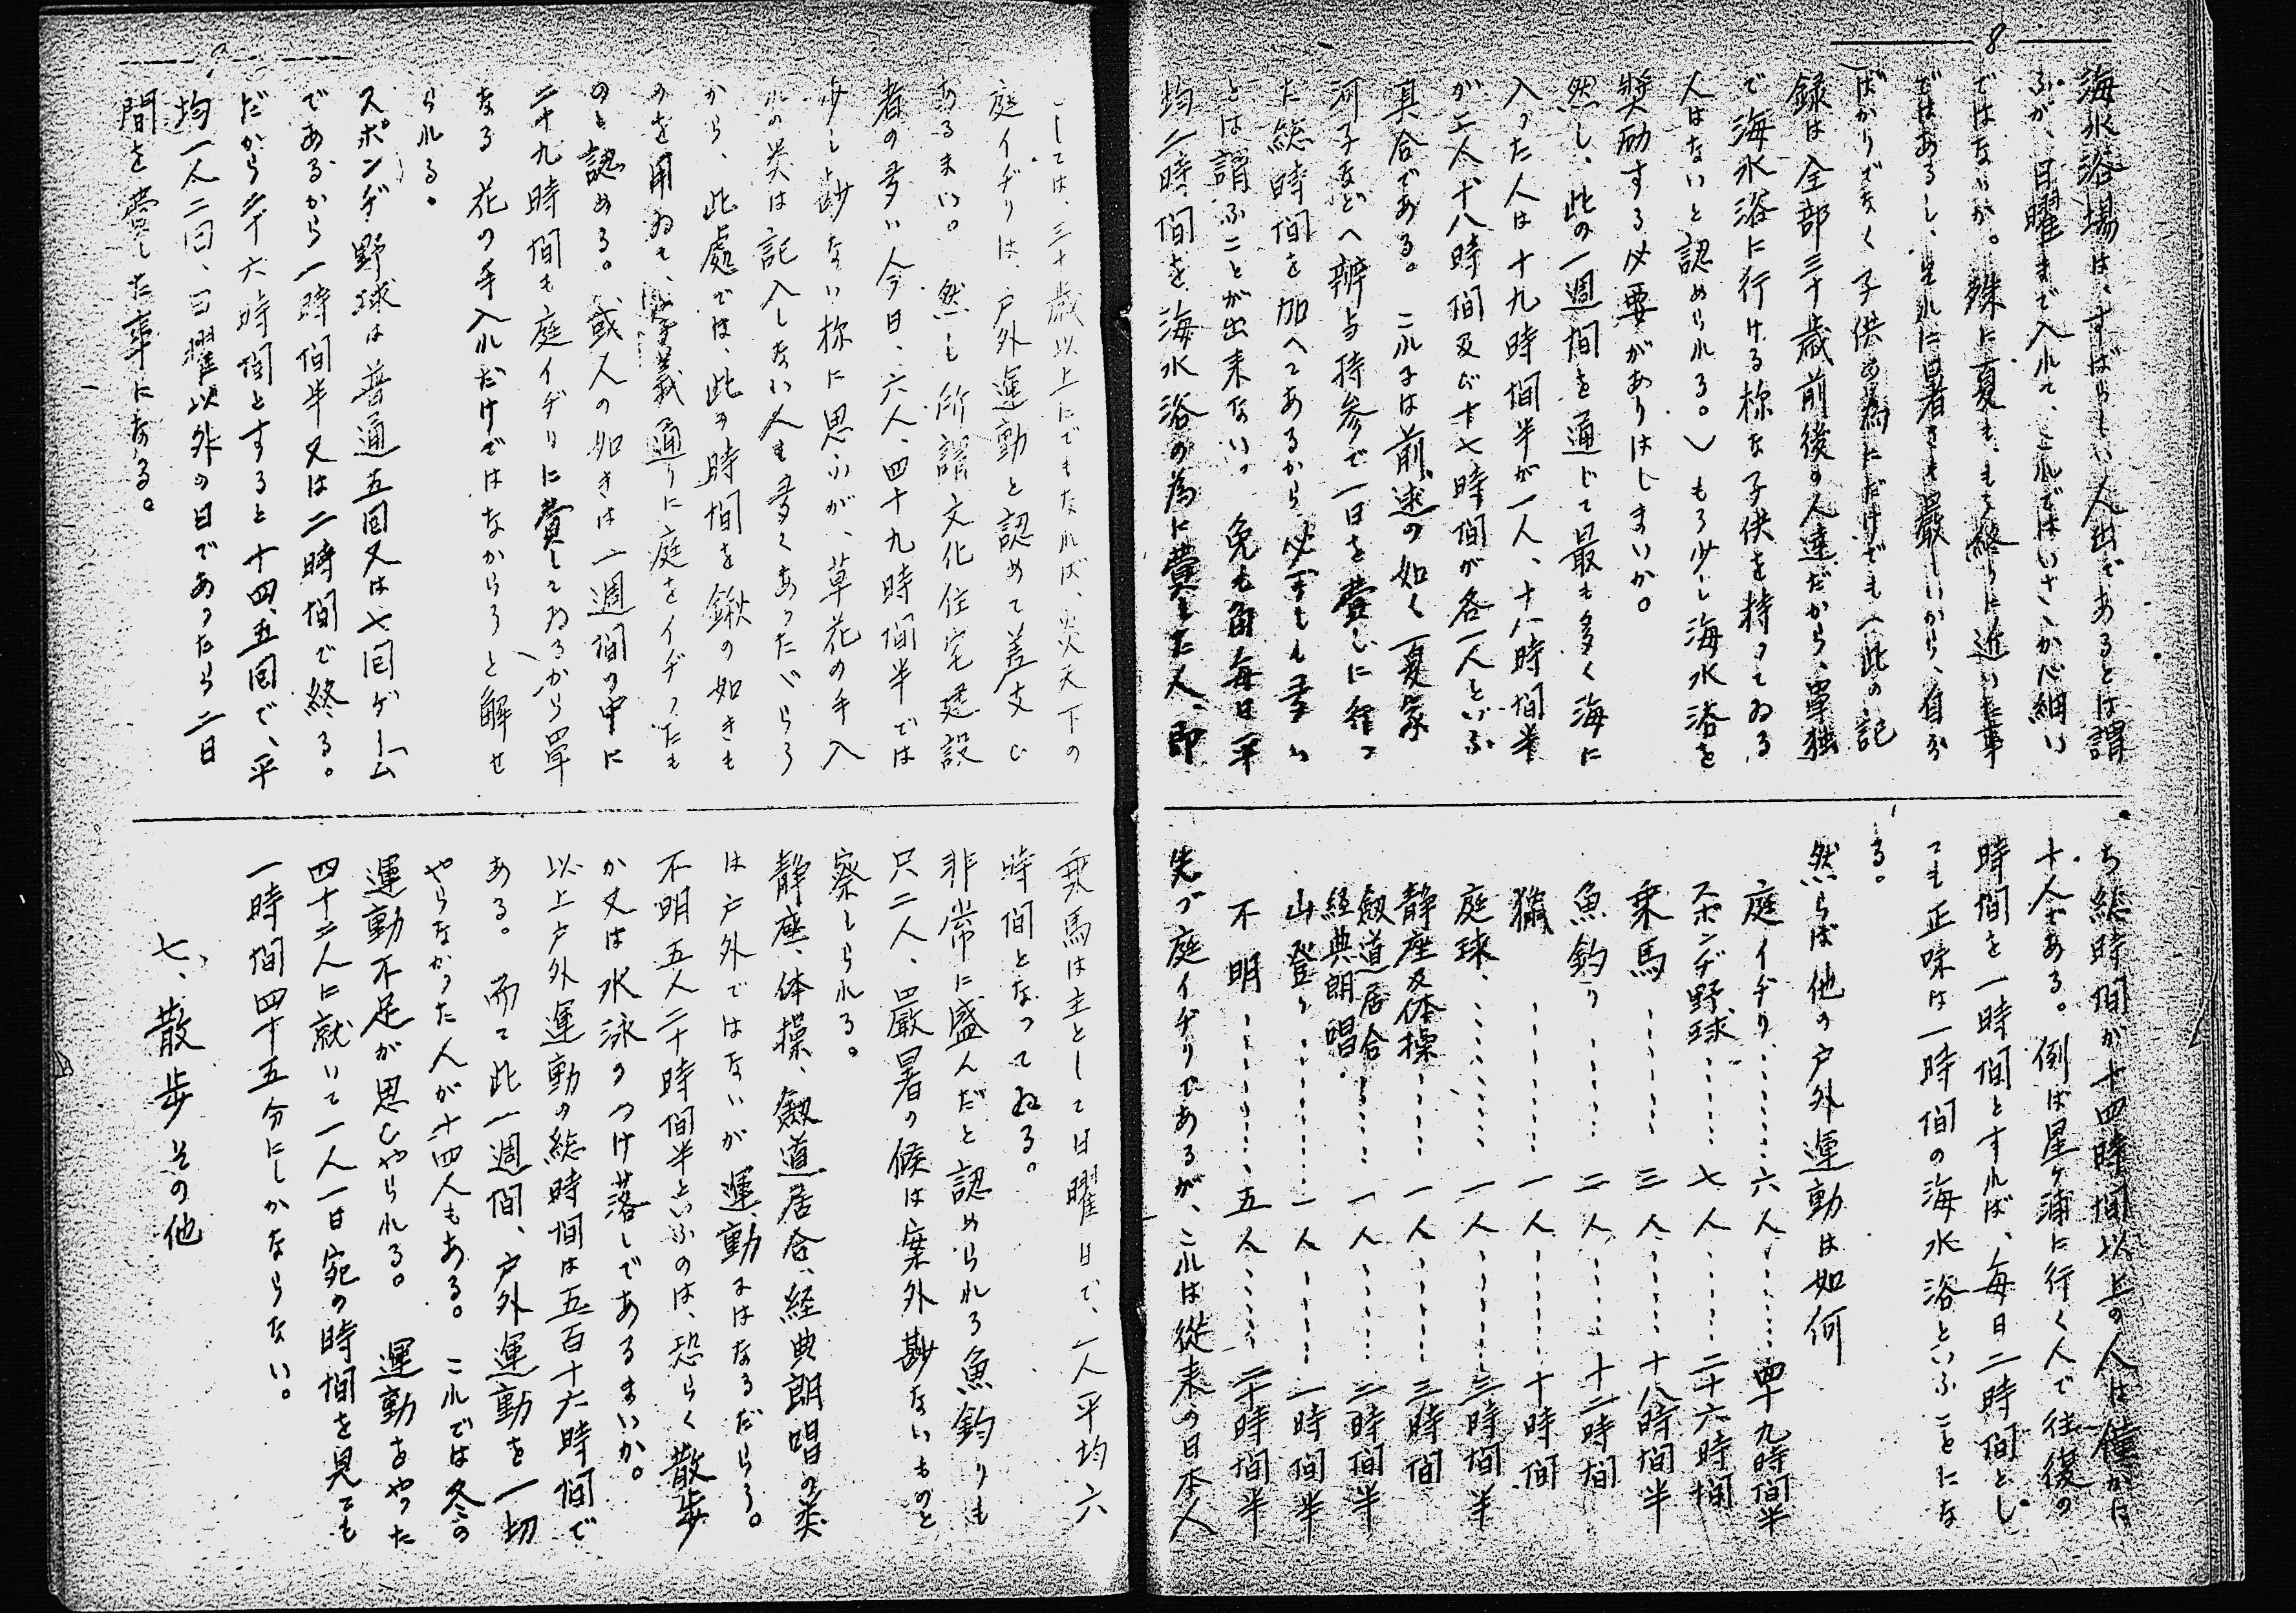 8
海水浴場は、すばらしい人出であるとは謂
ふが、日曜まで入れて、これではいさゝか心細い
ではないか。殊に夏も、もう終りに近いた事
ではあるし、それに暑さも厳しいから、自分
ばかりでなく子供の為にだけでも(此の記
録は全部三十歳前後の人達だから、単独
で海水浴に行ける様な子供を持つてゐる
人はないと認められる。)もう少し海水浴を
奨励する必要がありはしまいか。
然し、此の一週間を通じて最も多く海に
入つた人は十九時間半が一人、十八時間半
が二人、十八時間及び十七時間が各一人といふ
具合である。これは前述の如く一夏家
河子などへ辨当持参で一日を費しに行つ
た総時間を加へてあるから必ずしも多い
とは謂ふことが出来ない。兎も角毎日平
均二時間を海水浴の為に費した人、即
ち総時間が十四時間以上の人は僅かに
十人である。例ば星ヶ浦に行く人で往復の
時間を一時間とすれば、毎日二時間とし
ても正味は一時間の海水浴といふことにな
る。
然らば他の戸外運動は如何
庭イヂリ…………六人…………四十九時間半
スポンヂ野球…………七人…………二十六時間
乗馬…………三人…………十八時間半
魚釣り…………二人…………十二時間
猟…………一人…………十時間
庭球…………一人…………三時間半
静座及体操…………一人…………三時間
劔道居合
経典朗唱…………一人…………二時間半
山登り…………一人…………一時間半
不明…………五人…………二十時間半
先づ庭イヂリであるが、これは従来の日本人
としては、三十歳以上にでもなれば、炎天下の
庭イヂリは、戸外運動と認めて差支ひ
あるまい。然も所謂文化住宅建設
者の多い今日、六人、四十九時間半では
少し尠ない様に思ふが、草花の手入
れの类は記入しない人も多くあつたいらう
から、此處では、此の時間を鍬の如きも
のを用ゐて、字義通りに庭をイヂつたも
のと認める。或人の如きは一週間の中に
二十九時間も庭イヂリに費してゐるから単
なる花の手入れだけではなからうと解せ
られる。
スポンヂ野球は普通五回又は七回ゲーム
であるから一時間半又は二時間で終る。
だから二十六時間とすると十四、五回で、平
均一人二回、日曜以外の日であつたら二日
間を費した事になる。
乗馬は主として日曜日で、一人平均六
時間となつてゐる。
非常に盛んだと認められる魚釣りも
只二人、厳暑の候は案外尠ないものと
察しられる。
静座、体操、劔道居合、経典朗唱の类
は戸外ではないが運動にはなるだらう。
不明五人二十時間半といふのは、恐らく散歩
か又は水泳のつけ落しであるまいか。
以上戸外運動の総時間は五百十六時間で
ある。而て此一週間、戸外運動を一切
やらなかつた人が十四人もある。これでは冬の
運動不足が思ひやられる。運動をやつた
四十二人に就いて一人一日宛の時間を見ても
一時間四十五分にしかならない。
七、散歩その他